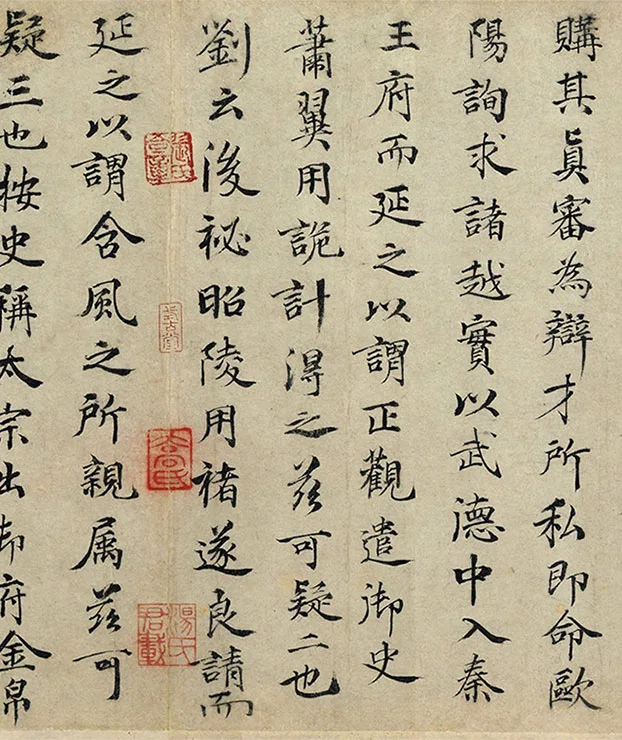 購其真審為辯才所私即命歐
陽詢求諸越實以武德中入秦
王府而延之以謂正觀遣御史
蕭翼用詭計得之茲可疑二也
劉云後祕昭陵用褚遂良請而
湯氏
君載
延之以謂含風之所親属茲可
疑三也按史稱太宗出御府金帛